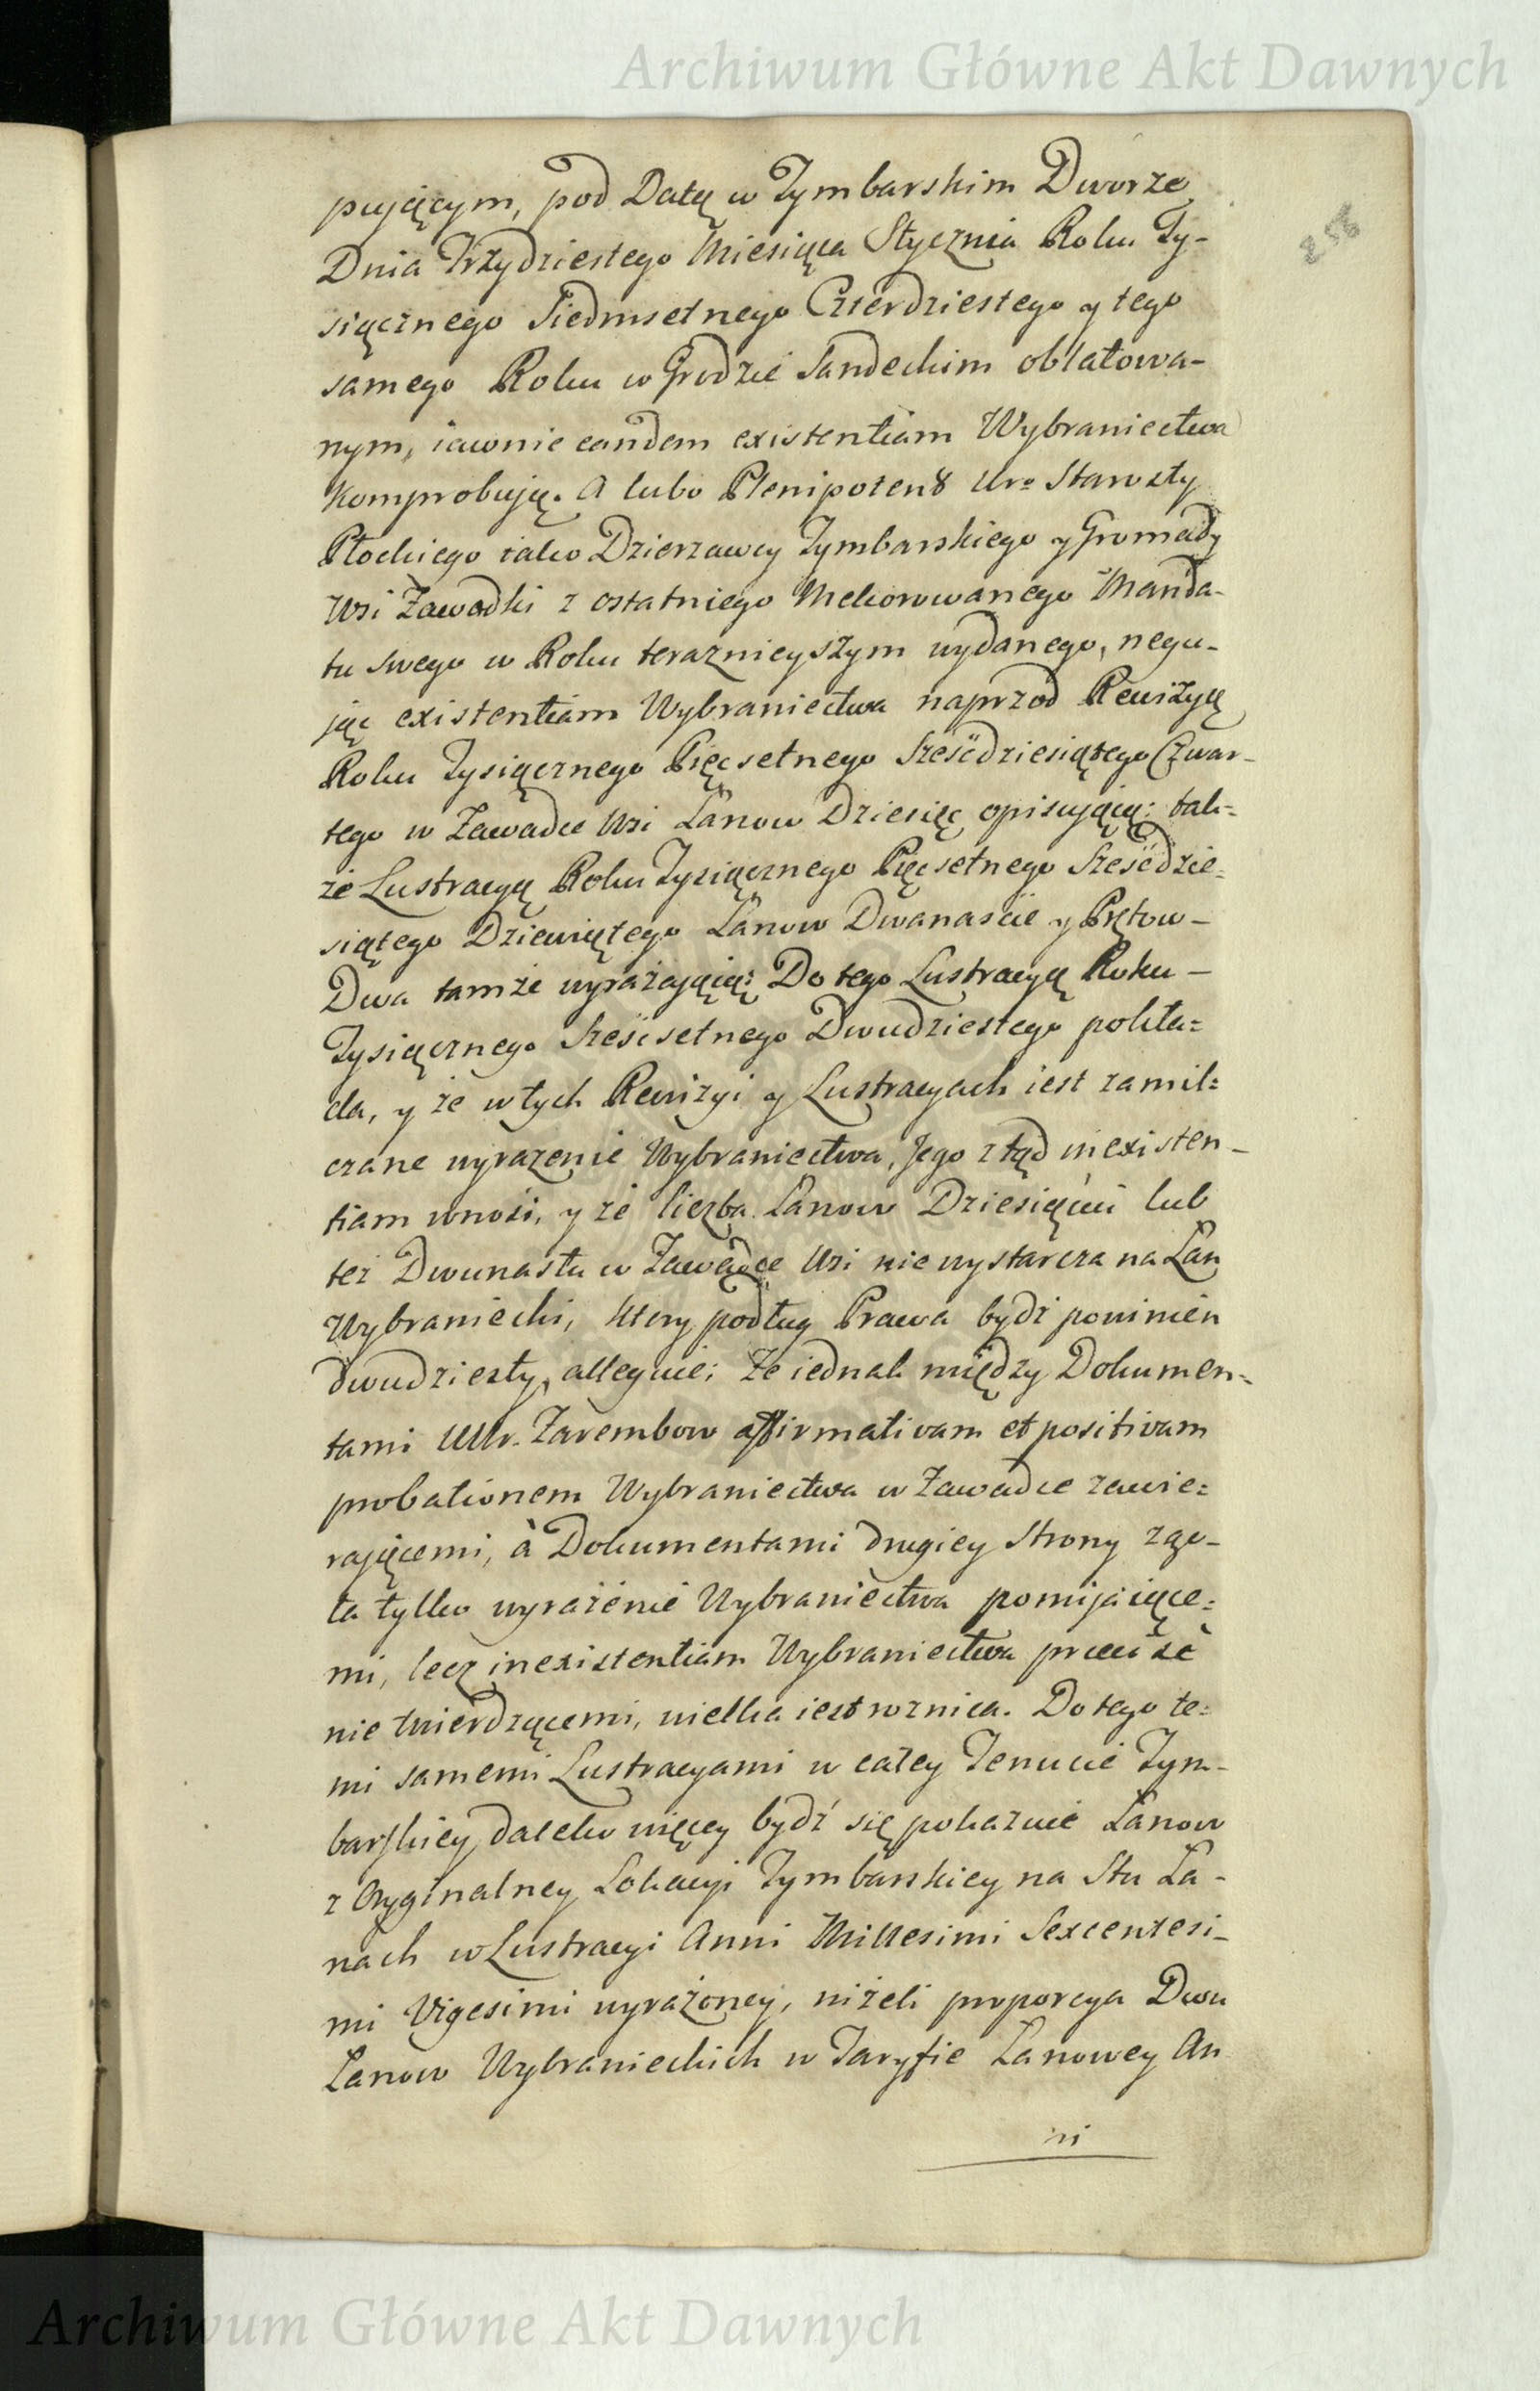 Archiwum Główne Akt Dawnych
258
pującym, pod Datą w Tymbarskim Dworze
Dnia Trzydziestego Miesiąca Stycznia Roku Ty-
siącznego Siedmsetnego Czterdziestego y tego
samego Roku w Grodzie Sandeckim oblatowa-
nym, iawnie eandem existentiam Wybraniectwa
komprobują. A lubo Plenipotent Ur: Starosty
Płockiego iako Dzierzawcy Tymbarskiego y Gromady
Wsi Zawadki z ostatniego Meliorowanego Manda-
tu swego w Roku teraznieyszym wydanego, negu-
jąc existentiam Wybraniectwa naprzod Rewizyą
Roku Tysiącznego Pięcsetnego Sześćdziesiątego Czwar-
tego w Zawadce Wsi Łanow Dziesięć opisującą: tak=
że Lustracyą Roku Tysiącznego Pięcsetnego Sześćdzie=
siątego Dziewiątego Łanow Dwanaście y Prętow-
Dwa tamże wyrażającą: Do tego Lustracyą Roku-
Tysiącznego Sześćsetnego Dwudziestego pokła=
da, y że w tych Rewizyi y Lustracyach iest zamil=
czane wyrażenie Wybraniectwa, Jego ztąd inexisten-
tiam wnosi, y że liczba Łanow Dziesiąciu lub
też Dwunastu w Zawadce Wsi nie wystarcza na Łan
Wybraniecki, ktory podług Prawa bydź powinien
dwudziesty, alleguie; Ze iednak między Dokumen=
tami UUr. Zarembow affirmativam et positivam
probationem Wybraniectwa w Zawadce zawie=
rającemi, à Dokumentami drugiey Strony zgo-
ła tylko wyrażenie Wybraniectwa pomijaiące=
mi, lecz inexistentiam Wybraniectwa precise
nie twierdzącemi, wielka iest roznica. Do tego te=
mi samemi Lustracyami w całey Tenucie Tym-
barskiey daleko więcey bydź się pokazuie Łanow
z Oryginalney Lokacyi Tymbarskiey na Stu Ła-
nach w Lustracyi Anni Millesimi Sexcentesi-
mi Vigesimi wyrażoney, niżeli proporcya Dwu
Łanow Wybranieckich w Taryfie Łanowey An
ni
Archiwum Główne Akt Dawnych